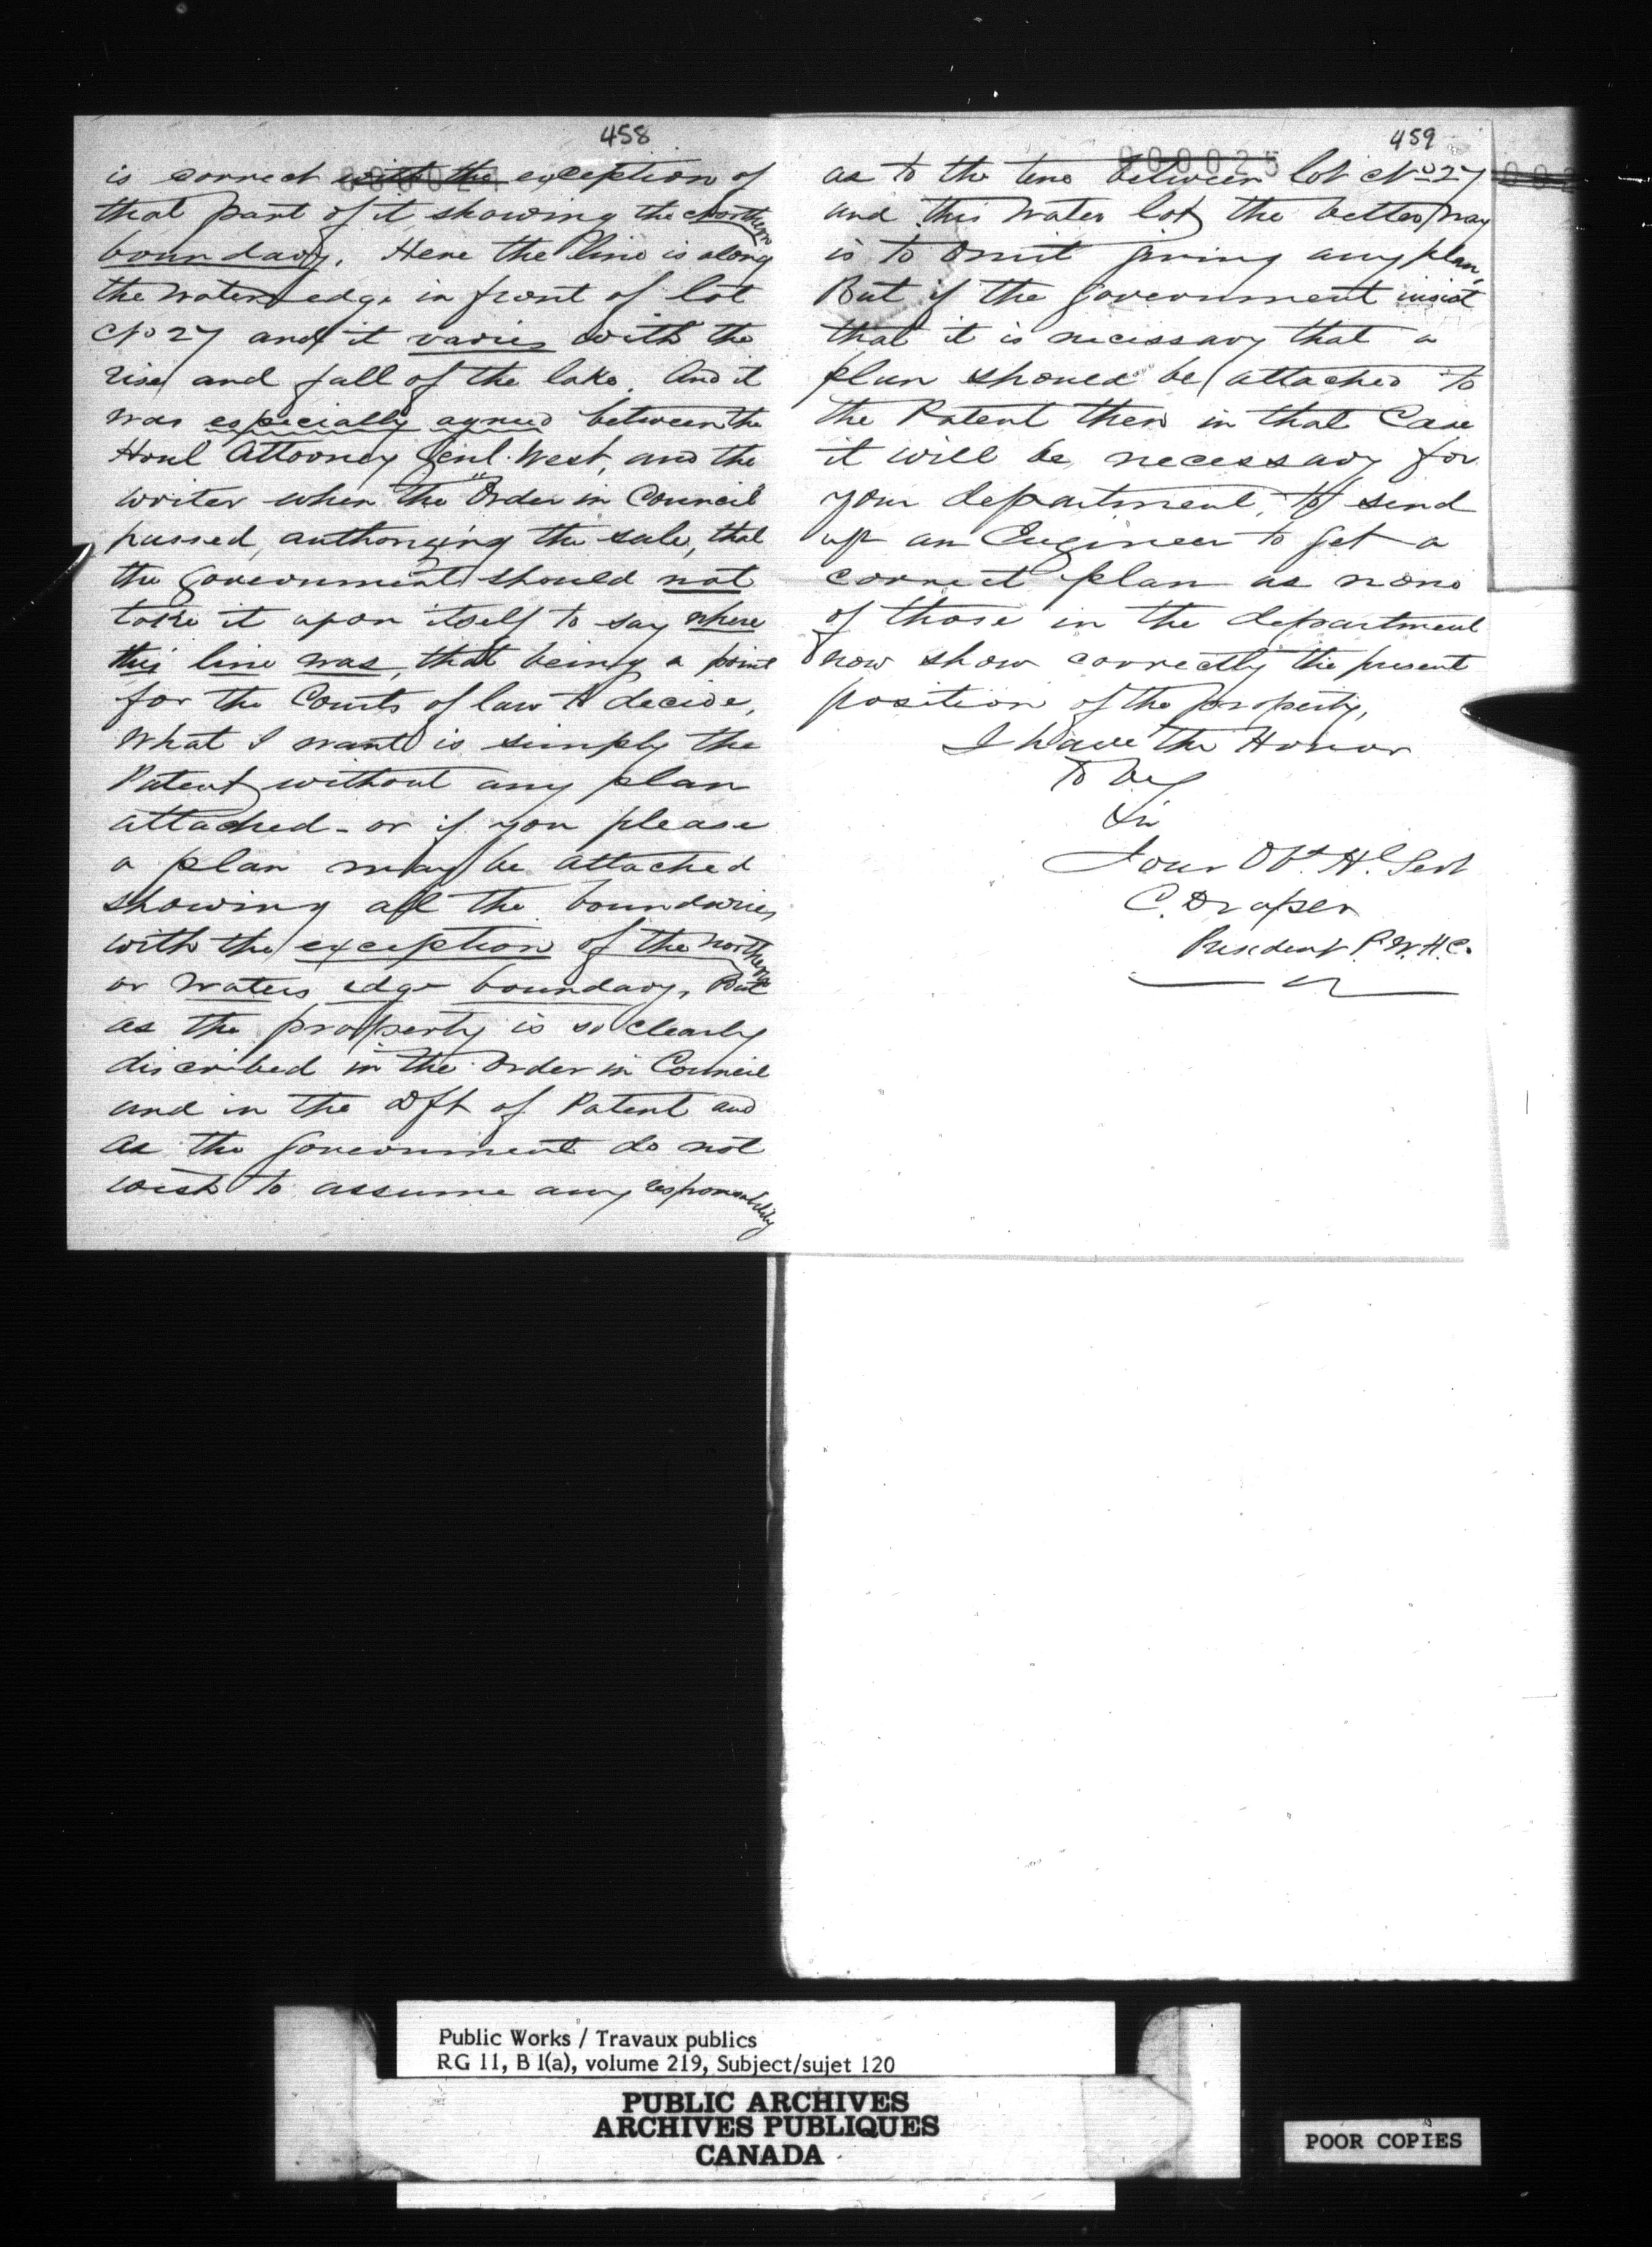 458
is correct with the exception of
that part of it showing the Northern
boundary. Here the line is along
the waters edge in front of lot
No 27 and it varies with the
rise and fall of the lake. And it
was especially agreed between the
Honl Attorney Genl. West, and the
writer when the "Order in Council"
passed, authorizing the sale, that
the Government should not
take it upon itself to say where
this line was, that being a point
for the Courts of law to decide.
What I want is simply the
Patent without any plan
attached - or if you please
a plan may be attached
showing all the boundaries
with the exception of the northern
or waters edge boundary. But
as the property is so clearly
discribed in the Order in Council
and in the Dft of Patent and
as the Government do not
wish to assume any responsibility
459
000025
as to the line between lot No 27
and this Water lot, the better way
is to omit giving any plan.
But if the Government insist
that it is necessary that a
plan should be attached to
the Patent then in that Case
it will be necessary for
your department, to send
up an Engineer to get a
correct plan as none
of those in the department
now show correctly the present
position of the property.
I have the Honor
to be
Sir
Your Obt. Hl. Servt
C. Draper
President P. W. H. Co.
Public Works / Travaux publics
RG 11, B 1(a), volume 219, Subject/sujet 120
PUBLIC ARCHIVES
ARCHIVES PUBLIQUES
CANADA
POOR COPIES